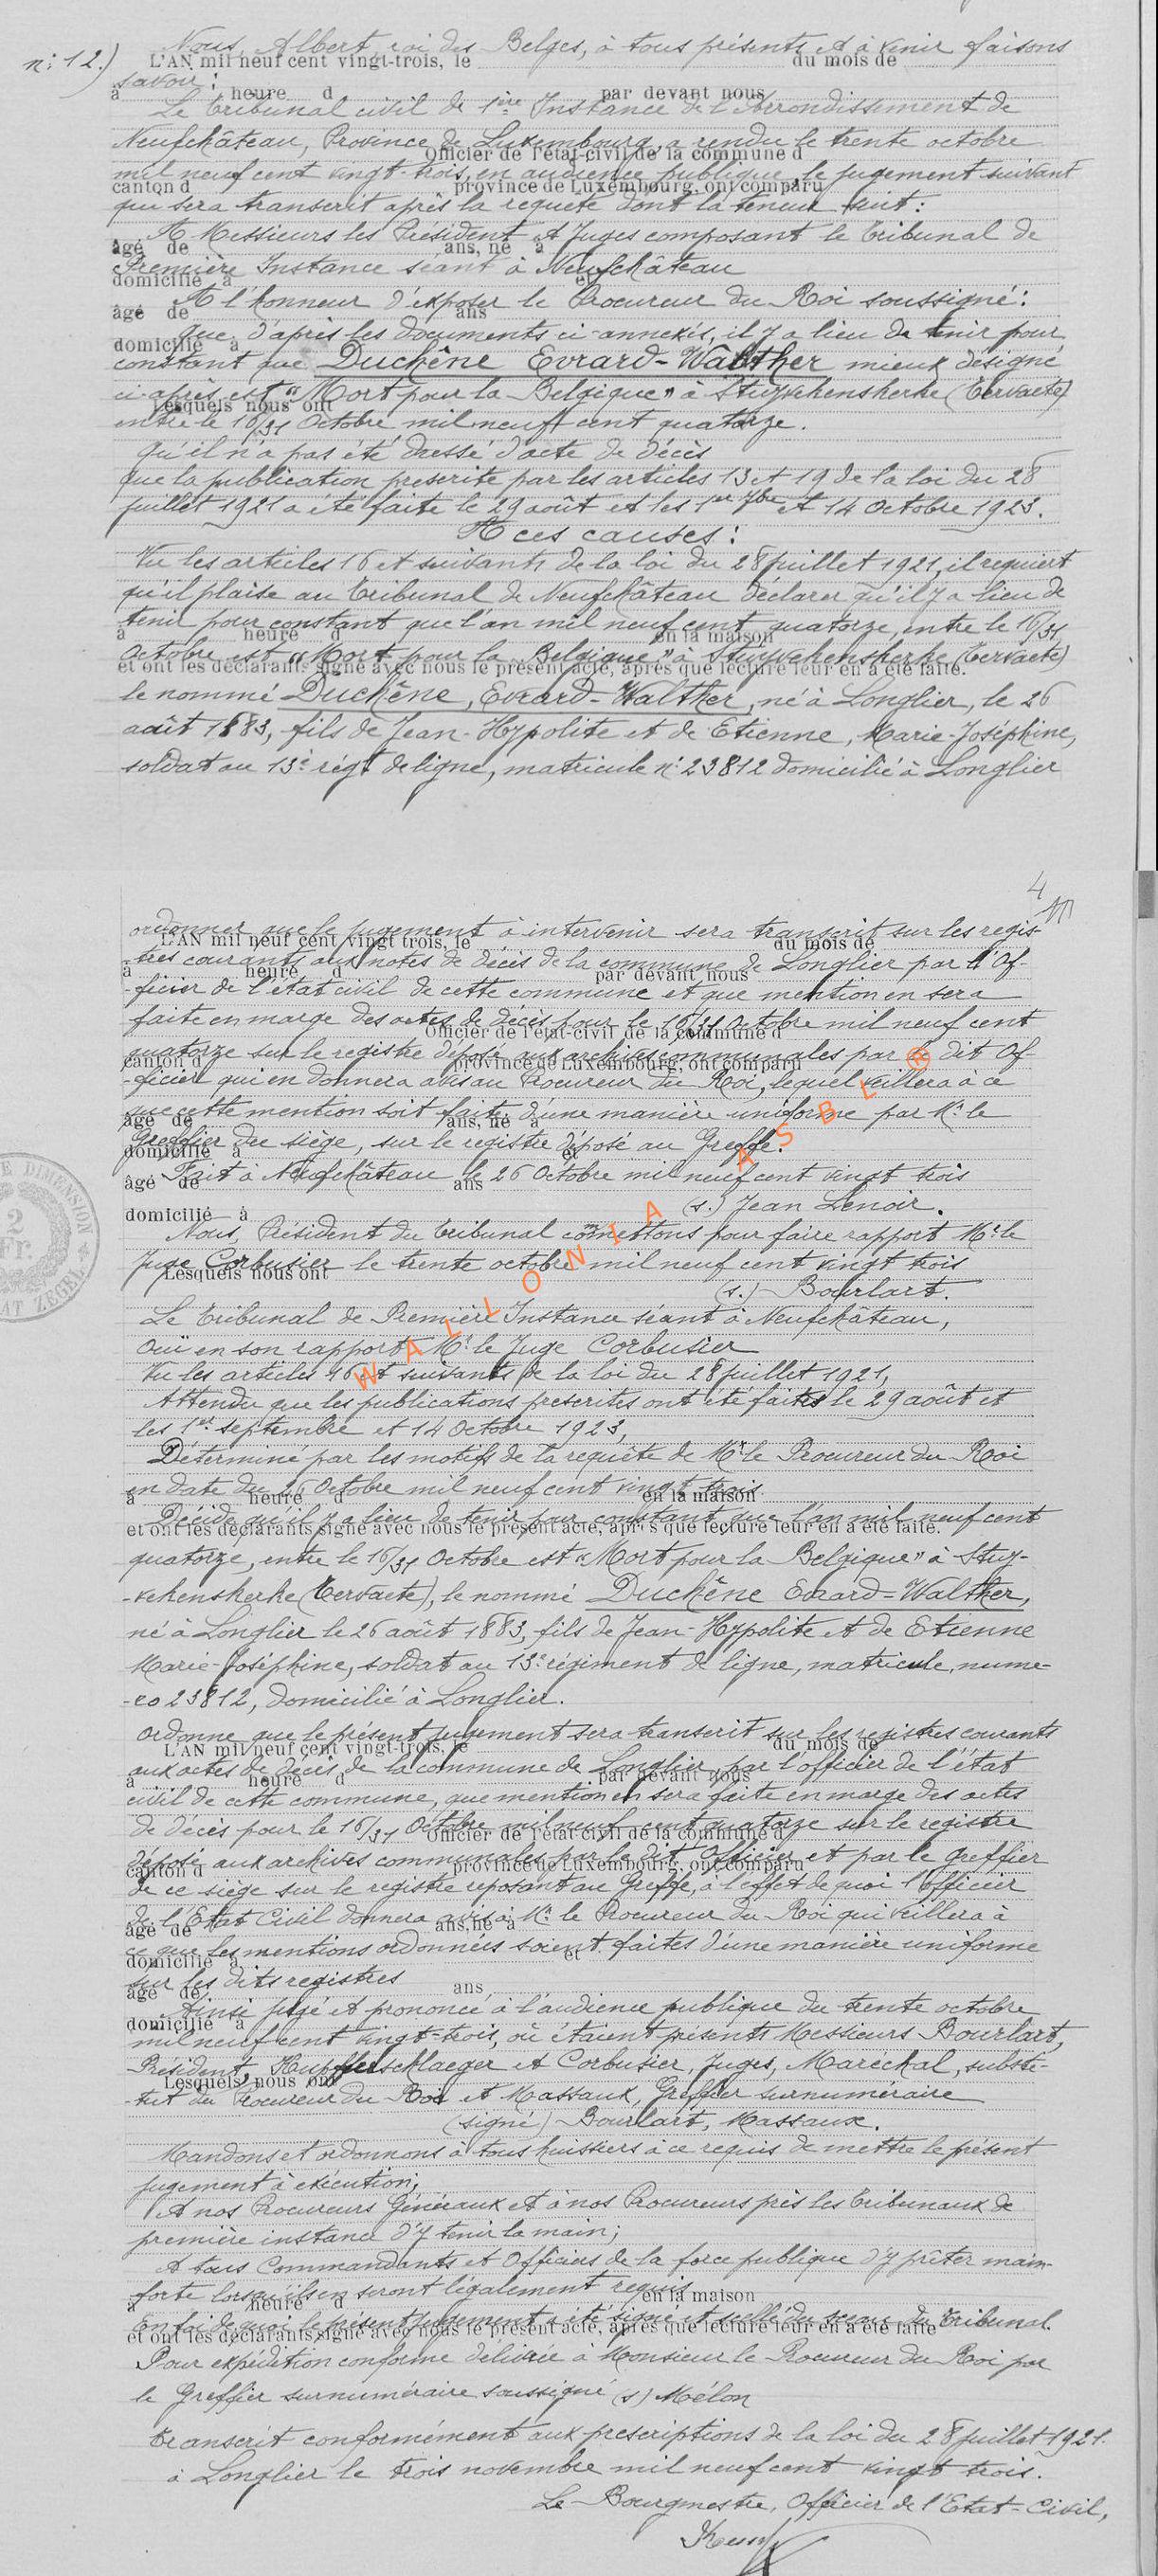 n: 12.)
Nous, Albert, roi des Belges, à tous présents et à venir faisons
L'AN mil neuf cent vingt-trois, le du mois de
savoir :
à heure d par devant nous
Le tribunal civil de 1ère Instance de l'Arrondissement de
Neufchâteau, Province de Luxembourg, a rendu le trente octobre
Officier de l'état-civil de la commune d
mil neuf cent vingt-trois, en audience publique, le jugement suivant
canton d province de Luxembourg, ont comparu
qui sera transcrit après la requête dont la teneur suit :
A Messieurs les Président et Juges composant le tribunal de
âgé de ans, né à
Première Instance séant à Neufchâteau
domicilié à et
A l'honneur d'exposer le Procureur du Roi soussigné :
âgé de ans
Que d'après les documents ci-annexés, il y a lieu de tenir pour
domicilié à
constant que Duchêne Evrard-Walther mieux désigné
ci-après est "Mort pour la Belgique" à Stuyvekenskerke (Tervaete)
Lesquels nous ont
entre le 16/31 Octobre mil neuf cent quatorze.
Qu'il n'a pas été dressé d'acte de décès
que la publication prescrite par les articles 13 et 19 de la loi du 28
juillet 1921 a été faite le 29 août et les 1er 7bre et 14 Octobre 1923.
A ces causes :
Vu les articles 16 et suivants de la loi du 28 juillet 1921, il requiert
qu'il plaise au tribunal de Neufchâteau déclarer qu'il y a lieu de
tenir pour constant que l'an mil neuf cent quatorze, entre le 16/31
à heure d en la maison
Octobre est "Mort pour la Belgique" à Stuyvekenskerke (Tervaete)
et ont les déclarants signé avec nous le présent acte, après que lecture leur en a été faite.
le nommé Duchêne, Evrard-Walther, né à Longlier, le 26
août 1883, fils de Jean-Hypolite et de Etienne, Marie-Joséphine,
soldat au 13e régt de ligne, matricule n: 23812 domicilié à Longlier
4
ordonner que le jugement à intervenir sera transcrit sur les regis-
L'AN mil neuf cent vingt trois, le du mois de
-tres courants aux notes de décès de la commune de Longlier par l'Of-
à heure d par devant nous
-ficier de l'état civil de cette commune et que mention en sera
faite en marge des actes de décès pour le 16/31 Octobre mil neuf cent
Officier de l'état-civil de la commune d
quatorze sur le registre déposé aux archives communales par le dit Of-
canton d province de Luxembourg, ont comparu
-ficier qui en donnera avis au Procureur du Roi, lequel veillera à ce
que cette mention soit faite d'une manière uniforme par Mr le
âgé de ans, né à
Greffier du siège, sur le registre déposé au Greffe.
domicilié à et
Fait à Neufchâteau le 26 Octobre mil neuf cent vingt trois
âgé de ans
(s.) Jean Lenoir.
domicilié à
Nous, Président du tribunal commettons pour faire rapport Mr le
Juge Corbusier le trente octobre mil neuf cent vingt trois
Lesquels nous ont
(s.) Bourlart.
Le tribunal de Première Instance séant à Neufchâteau,
Ouï en son rapport Mr le Juge Corbusier
WALLONIA ASBL ®
Vu les articles 16 et suivants de la loi du 28 juillet 1921,
Attendu que les publications prescrites ont été faites le 29 août et
les 1er septembre et 14 Octobre 1923,
Déterminé par les motifs de la requête de Mr le Procureur du Roi
en date du 26 Octobre mil neuf cent vingt trois
à heure d en la maison
Décide qu'il y a lieu de tenir pour constant que l'an mil neuf cent
et ont les déclarants signé avec nous le présent acte, après que lecture leur en a été faite.
quatorze, entre le 16/31 Octobre est "Mort pour la Belgique" à Stuy-
-vekenskerke (Tervaete), le nommé Duchêne Evrard-Walther,
né à Longlier le 26 août 1883, fils de Jean-Hypolite et de Etienne
Marie-Joséphine, soldat au 13e régiment de ligne, matricule, numé-
-ro 23812, domicilié à Longlier.
Ordonne que le présent jugement sera transcrit sur les registres courants
L'AN mil neuf cent vingt-trois, le du mois de
aux actes de décès de la commune de Longlier, par l'officier de l'état
à heure d par devant nous
civil de cette commune, que mention en sera faite en marge des actes
de décès pour le 16/31 Octobre mil neuf cent quatorze sur le registre
Officier de l'état civil de la commune d
déposé aux archives communales par le dit Officier et par le greffier
canton d province de Luxembourg, ont comparu
de ce siège sur le registre reposant au Greffe, à l'effet de quoi l'officier
de l'Etat Civil donnera avis à Mr le Procureur du Roi qui veillera à
âgé de ans, né à
ce que les mentions ordonnées soient faites d'une manière uniforme
domicilié à et
sur les dits registres
âgé de ans
Ainsi jugé et prononcé à l'audience publique du trente octobre
domicilié à
mil neuf cent vingt-trois, où étaient présents Messieurs Bourlart,
Président, Huppffelschlaeger et Corbusier, Juges, Maréchal, substi-
Lesquels nous ont
-tut du Procureur du Roi et Massaux, Greffier surnuméraire
(signé) Bourlart, Massaux.
Mandons et ordonnons à tous huissiers à ce requis de mettre le présent
jugement à exécution;
A nos Procureurs Généraux et à nos Procureurs près les tribunaux de
première instance d'y tenir la main;
A tous Commandants et Officiers de la force publique d'y prêter main-
forte lorsqu'ils en seront légalement requis
à heure d en la maison
En foi de quoi le présent jugement a été signé et scellé du sceau du tribunal.
et ont les déclarants signé avec nous le présent acte, après que lecture leur en a été faite
Pour expédition conforme délivrée à Monsieur le Procureur du Roi par
le Greffier surnuméraire soussigné (s) Mélon
transcrit conformément aux prescriptions de la loi du 28 juillet 1921.
à Longlier le trois novembre mil neuf cent vingt trois.
Le Bourgmestre, Officier de l'Etat-Civil,